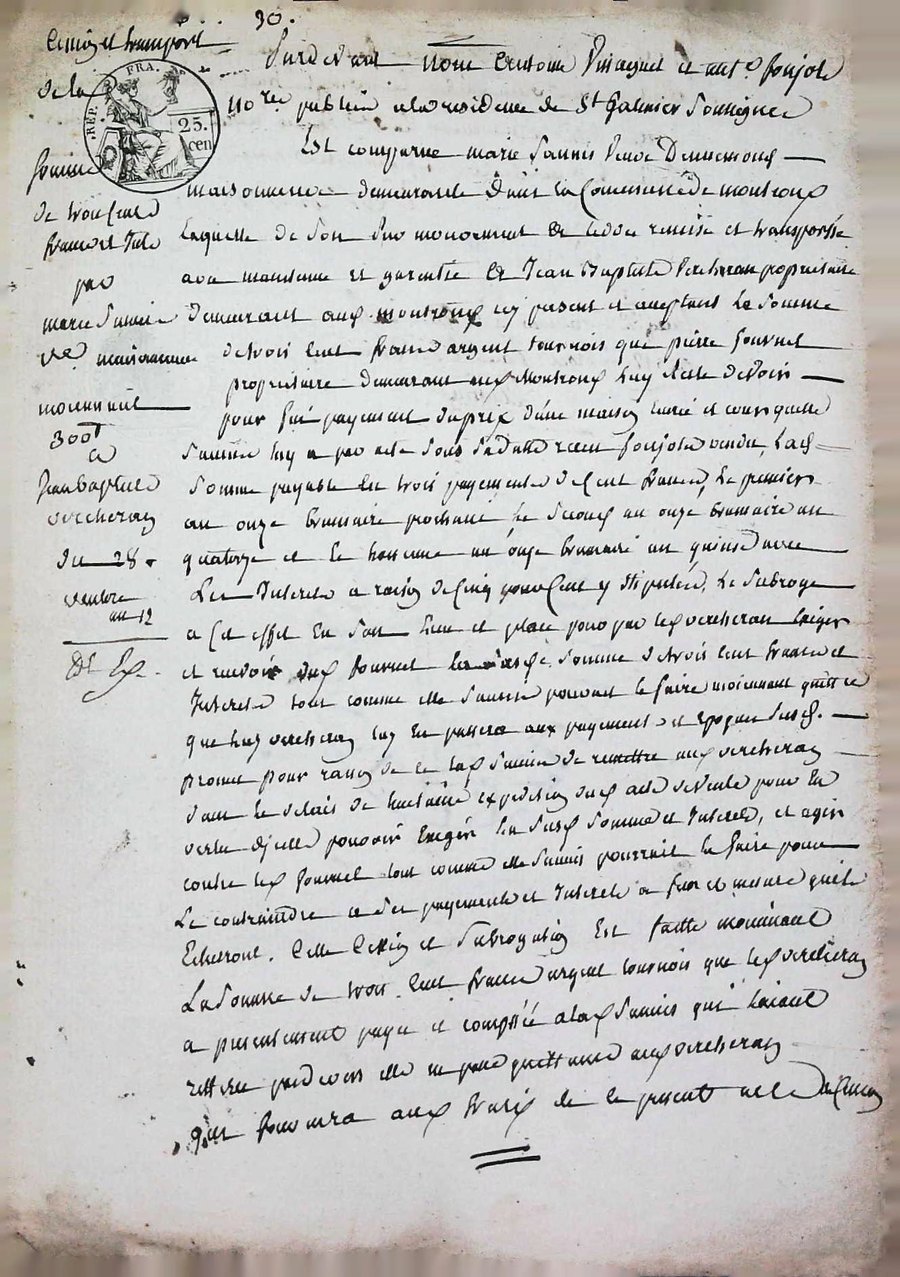 30.
Cession et transport
de la
RÉP. FRA.
25. cen
Somme
de trois Cent
francs et Inte
par
marie Saunié
ve maisonneuve
moiennant
300
a
Jean Baptiste
vercheran
du 28
ventose
an 12
Pardevant nous Antoine et ant. foujols
No.res publics a la residence de St Galmier Soussignés
Est comparue marie Saunis Veuve
maisonneuve demeurante dans la Commune de montrong
Laquelle de Son gré moiennant a cedée remise et transportée
avec maintenue et garentie a Jean Baptiste Vercheran propriétaire
demeurant aux montrong icy present et acceptant La Somme
de trois Cent francs argent tournois que pierre fournet
propriétaire demeurant aux Montrong luy Reste devoir
pour fin payement du prix d'une maison curée et cour quelle
Saunié luy a par acte Sous Sa datte recu foujols vendu, Lad.
Somme payable en trois payements de Cent francs, Le premier
au onze brumaire prochain le Second au onze brumaire an
quatorze et le troisieme au onze brumaire an quinse avec
Les Interets a raison de Cinq pour Cent y Stipulés, Le Subroge
a Cet effet en Son Lieu et place pour par led vercheran Exiger
et recevoir dud fournet la susd. Somme de trois Cent francs et
Interets tout comme elle Saunié pouvait le faire moiennant quittce
que luy vercheran luy en passera aux payements et Epoques Susd.
promet pour raison de ce lad Saunié de remettre aud vercheran
dans le delais de huitaine expedition dud acte de Vente pour en
vertu d'icelle pouvoir Exiger La Susd Somme et Interets, et agir
contre led fournet tout comme elle Saunis pourrait le faire pour
Le contraindre a Ses payements et Interets a fur et mesure quils
Echerront. Cette Cession et Subrogation Est faitte moiennant
La Somme de trois Cent francs argent tournois que led vercheran
a presentement payée et comptée a lad Saunis qui laiant
retirée par devers elle en passe quittance aud vercheran
qui fournira aux fraix de le present acte